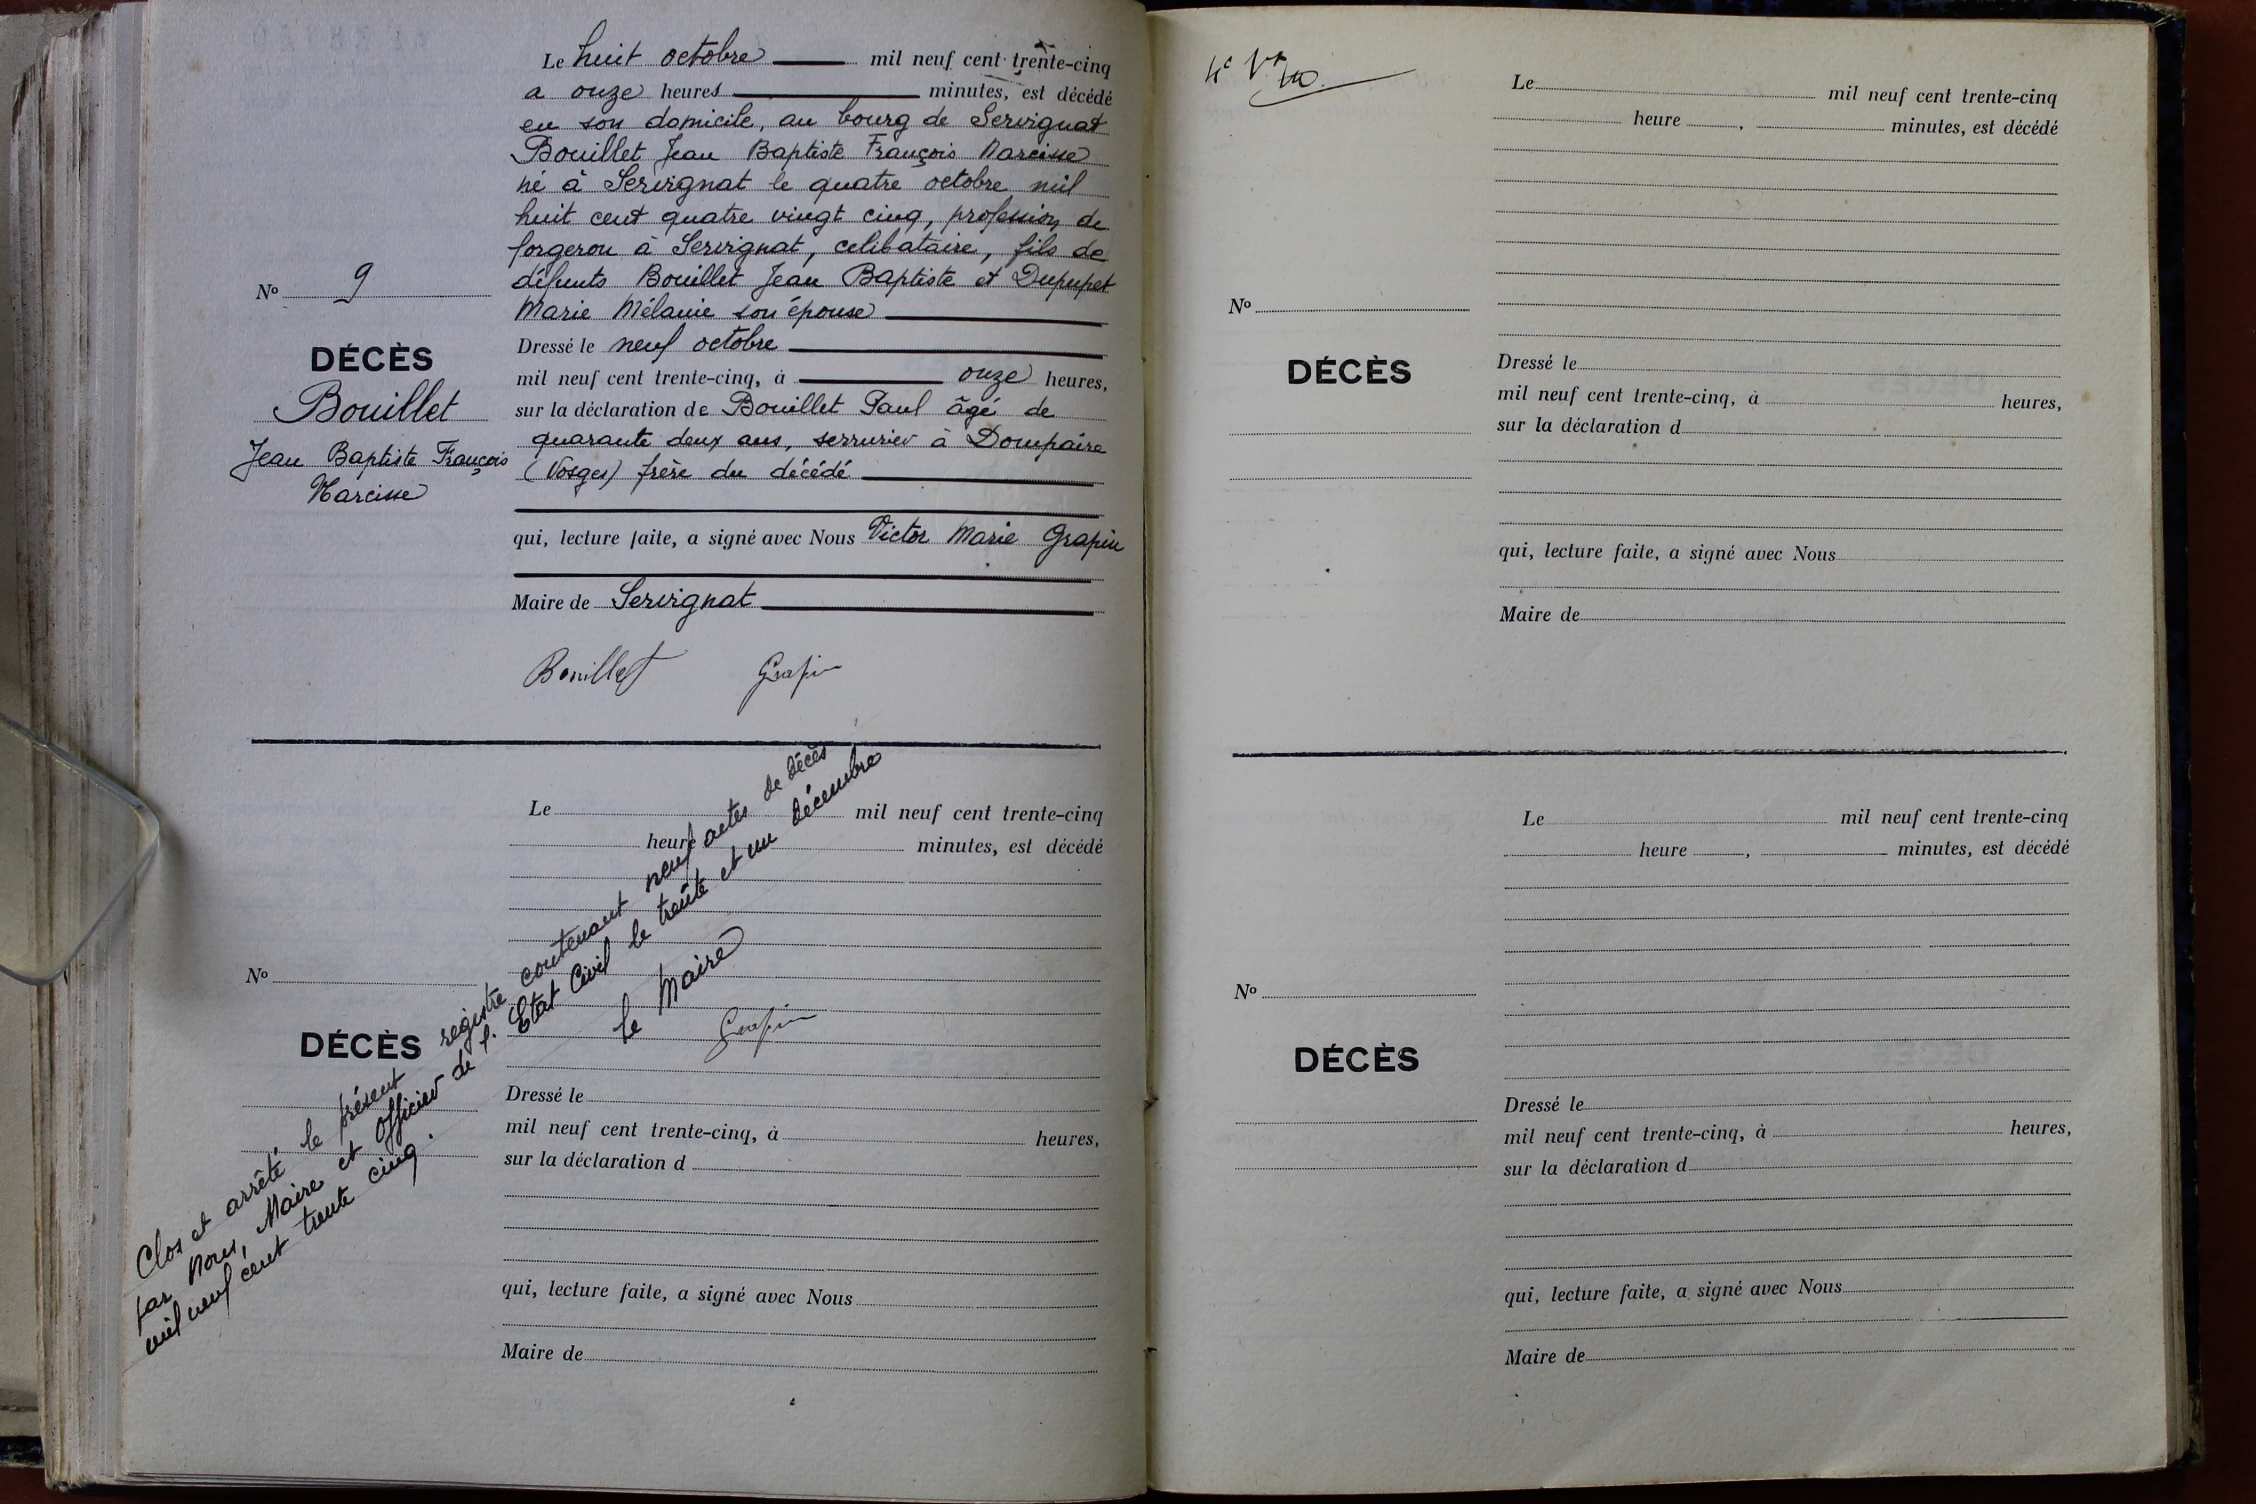 Le huit octobre mil neuf cent trente-cinq
a onze heures minutes, est décédé
en son domicile, au bourg de Servignat
Bouillet Jean Baptiste François Narcisse
né à Servignat le quatre octobre mil
huit cent quatre vingt cinq, profession de
forgeron à Servignat, celibataire, fils de
défunts Bouillet Jean Baptiste et Dupupet
Marie Mélanie son épouse
Nº 9
DÉCÈS
Bouillet
Jean Baptiste François
Narcisse
Dressé le neuf octobre
mil neuf cent trente-cinq, à onze heures,
sur la déclaration de Bouillet Paul âgé de
quarante deux ans, serrurier à Dompaire
(Vosges) frère du décédé
qui, lecture faite, a signé avec Nous Victor Marie Grapin
Maire de Servignat
Bouillet Grapin
Le mil neuf cent trente-cinq
heure minutes, est décédé
Nº
DÉCÈS
Dressé le
mil neuf cent trente-cinq, à heures,
sur la déclaration d
qui, lecture faite, a signé avec Nous
Maire de
Clos et arrêté le présent registre contenant neuf actes de décès
par nous, Maire et officier de l'Etat Civil le trente et un décembre
mil neuf cent trente cinq.
Le Maire
Grapin
Le mil neuf cent trente-cinq
heure , minutes, est décédé
Nº
DÉCÈS
Dressé le
mil neuf cent trente-cinq, à heures,
sur la déclaration d
qui, lecture faite, a signé avec Nous
Maire de
Le mil neuf cent trente-cinq
heure , minutes, est décédé
Nº
DÉCÈS
Dressé le
mil neuf cent trente-cinq, à heures,
sur la déclaration d
qui, lecture faite, a signé avec Nous
Maire de